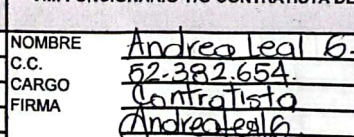 NOMBRE Andrea Leal G.
C.C. 52.382.654.
CARGO Contratista
FIRMA Andrea Leal G.